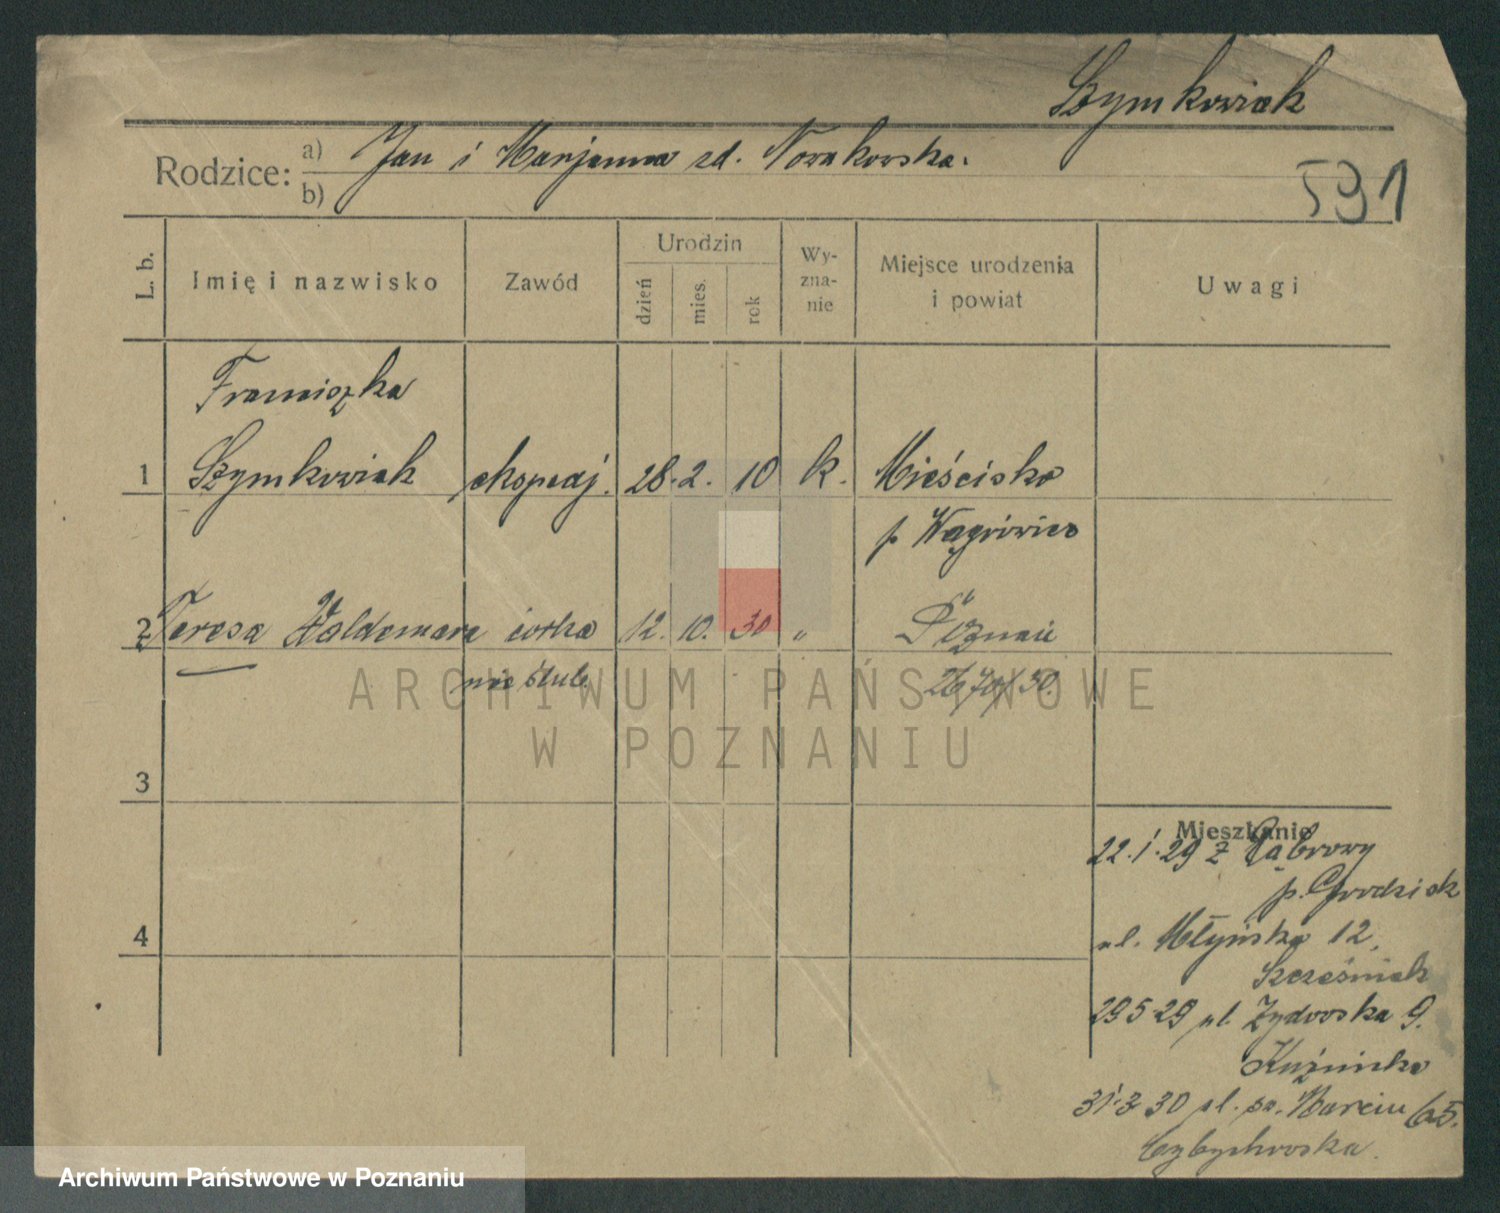 Szymkowiak
Rodzice:
a) Jan i Marjanna zd. Nowakowska.
b)
591
L. b.
Imię i nazwisko
Zawód
Urodzin
dzień
mies.
rok
Wy-
zna-
nie
Miejsce urodzenia
i powiat
Uwagi
Franciszka
1 Szymkowiak ekspedj. 28. 2. 10 k. Mieścisko
p. Wągrówiec
2 Teresa Waldemara córka 12. 10. 30 " Poznań
nieślub.
3
4
Mieszkanie
22.1.29 z Dąbrowy
p. Grodzisk
ul. Młyńska 12,
Szcześniak
29 5 29 ul. Żydowska 9.
Kuźnicka
31.3 30 ul. św. Marcin 65.
ARCHIWUM PAŃSTWOWE
W POZNANIU
Archiwum Państwowe w Poznaniu